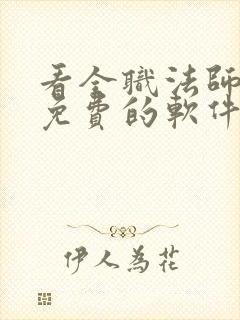 看全職法師
免費的軟件
伊人為花